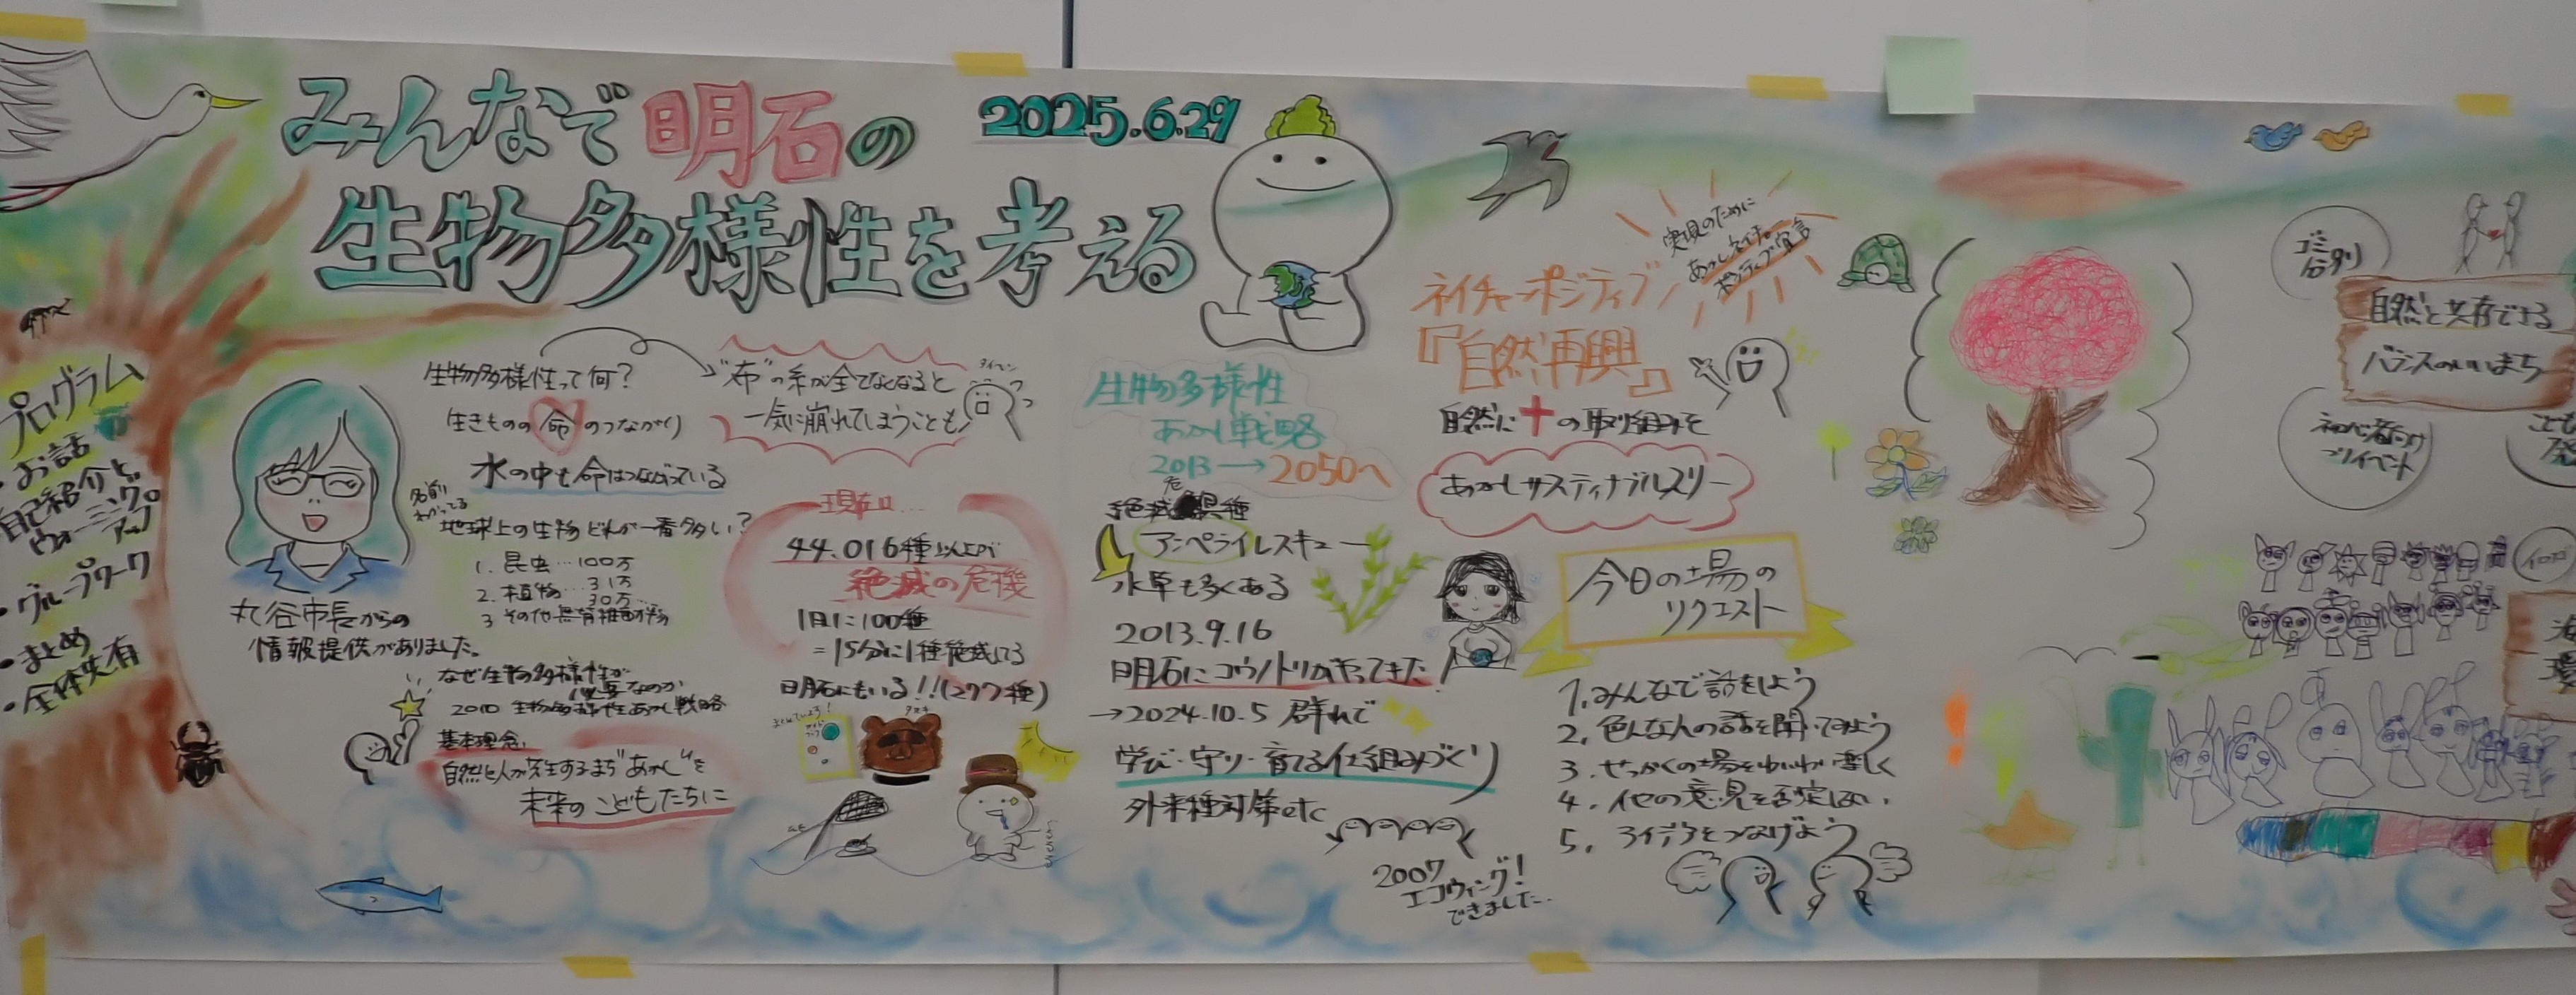 みんなで明石の
生物多様性を考える
2025.6.29
プログラム
・お話
自己紹介と
ウォーミング
アップ
・グループワーク
・まとめ
・全体共有
丸谷市長からの
情報提供がありました。
生物多様性って何?
生きものの命のつながり
水の中も命はつながっている
名前
わかってる
地球上の生物どれが一番多い?
1. 昆虫…100万
2. 植物…31万
30万
3 その他無脊椎動物
なぜ生物多様性が
必要なのか
2010 生物多様性あかし戦略
基本理念
自然と人が共生するまち"あかし"を
未来のこどもたちに
"布"の糸が全てなくなると
一気に崩れてしまうことも
タイヘン
現在は…
44.016種以上が
絶滅の危機
1日に100種
=15分に1種絶滅してる
明石にもいる!!(277種)
タヌキ
生物多様性
あかし戦略
2013→2050へ
絶滅危惧種
アンペライレスキュー
水草も多くある
2013.9.16
明石にコウノトリがやってきた!
→2024.10.5 群れで
学び・守り・育てる仕組みづくり
外来種対策etc
2007
エコウィング!
できました
ネイチャーポジティブ
『自然再興』
実現のために
あかしネイチャー
ポジティブ宣言
自然に+の取り組みを
あかしサスティナブルスリー
今日の場の
リクエスト
1. みんなで話をしよう
2. 色んな人の話を聞いてみよう
3. せっかくの場をわいわい楽しく
4. 他の意見を否定しない
5. アイデアをつなげよう
ゴミ
分別
自然と共存できる
バランスのいいまち
初心者向け
プレイベント
こども